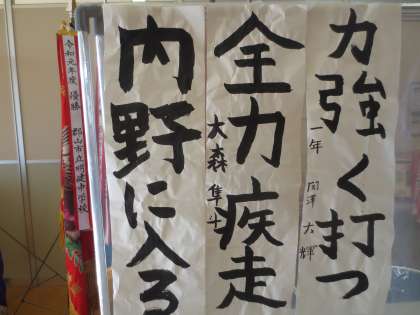 力強く打つ
一年 関澤 大輝
全力疾走
大森 隼斗
内野に入る
令和元年度 優勝
郡山市立明健中学校